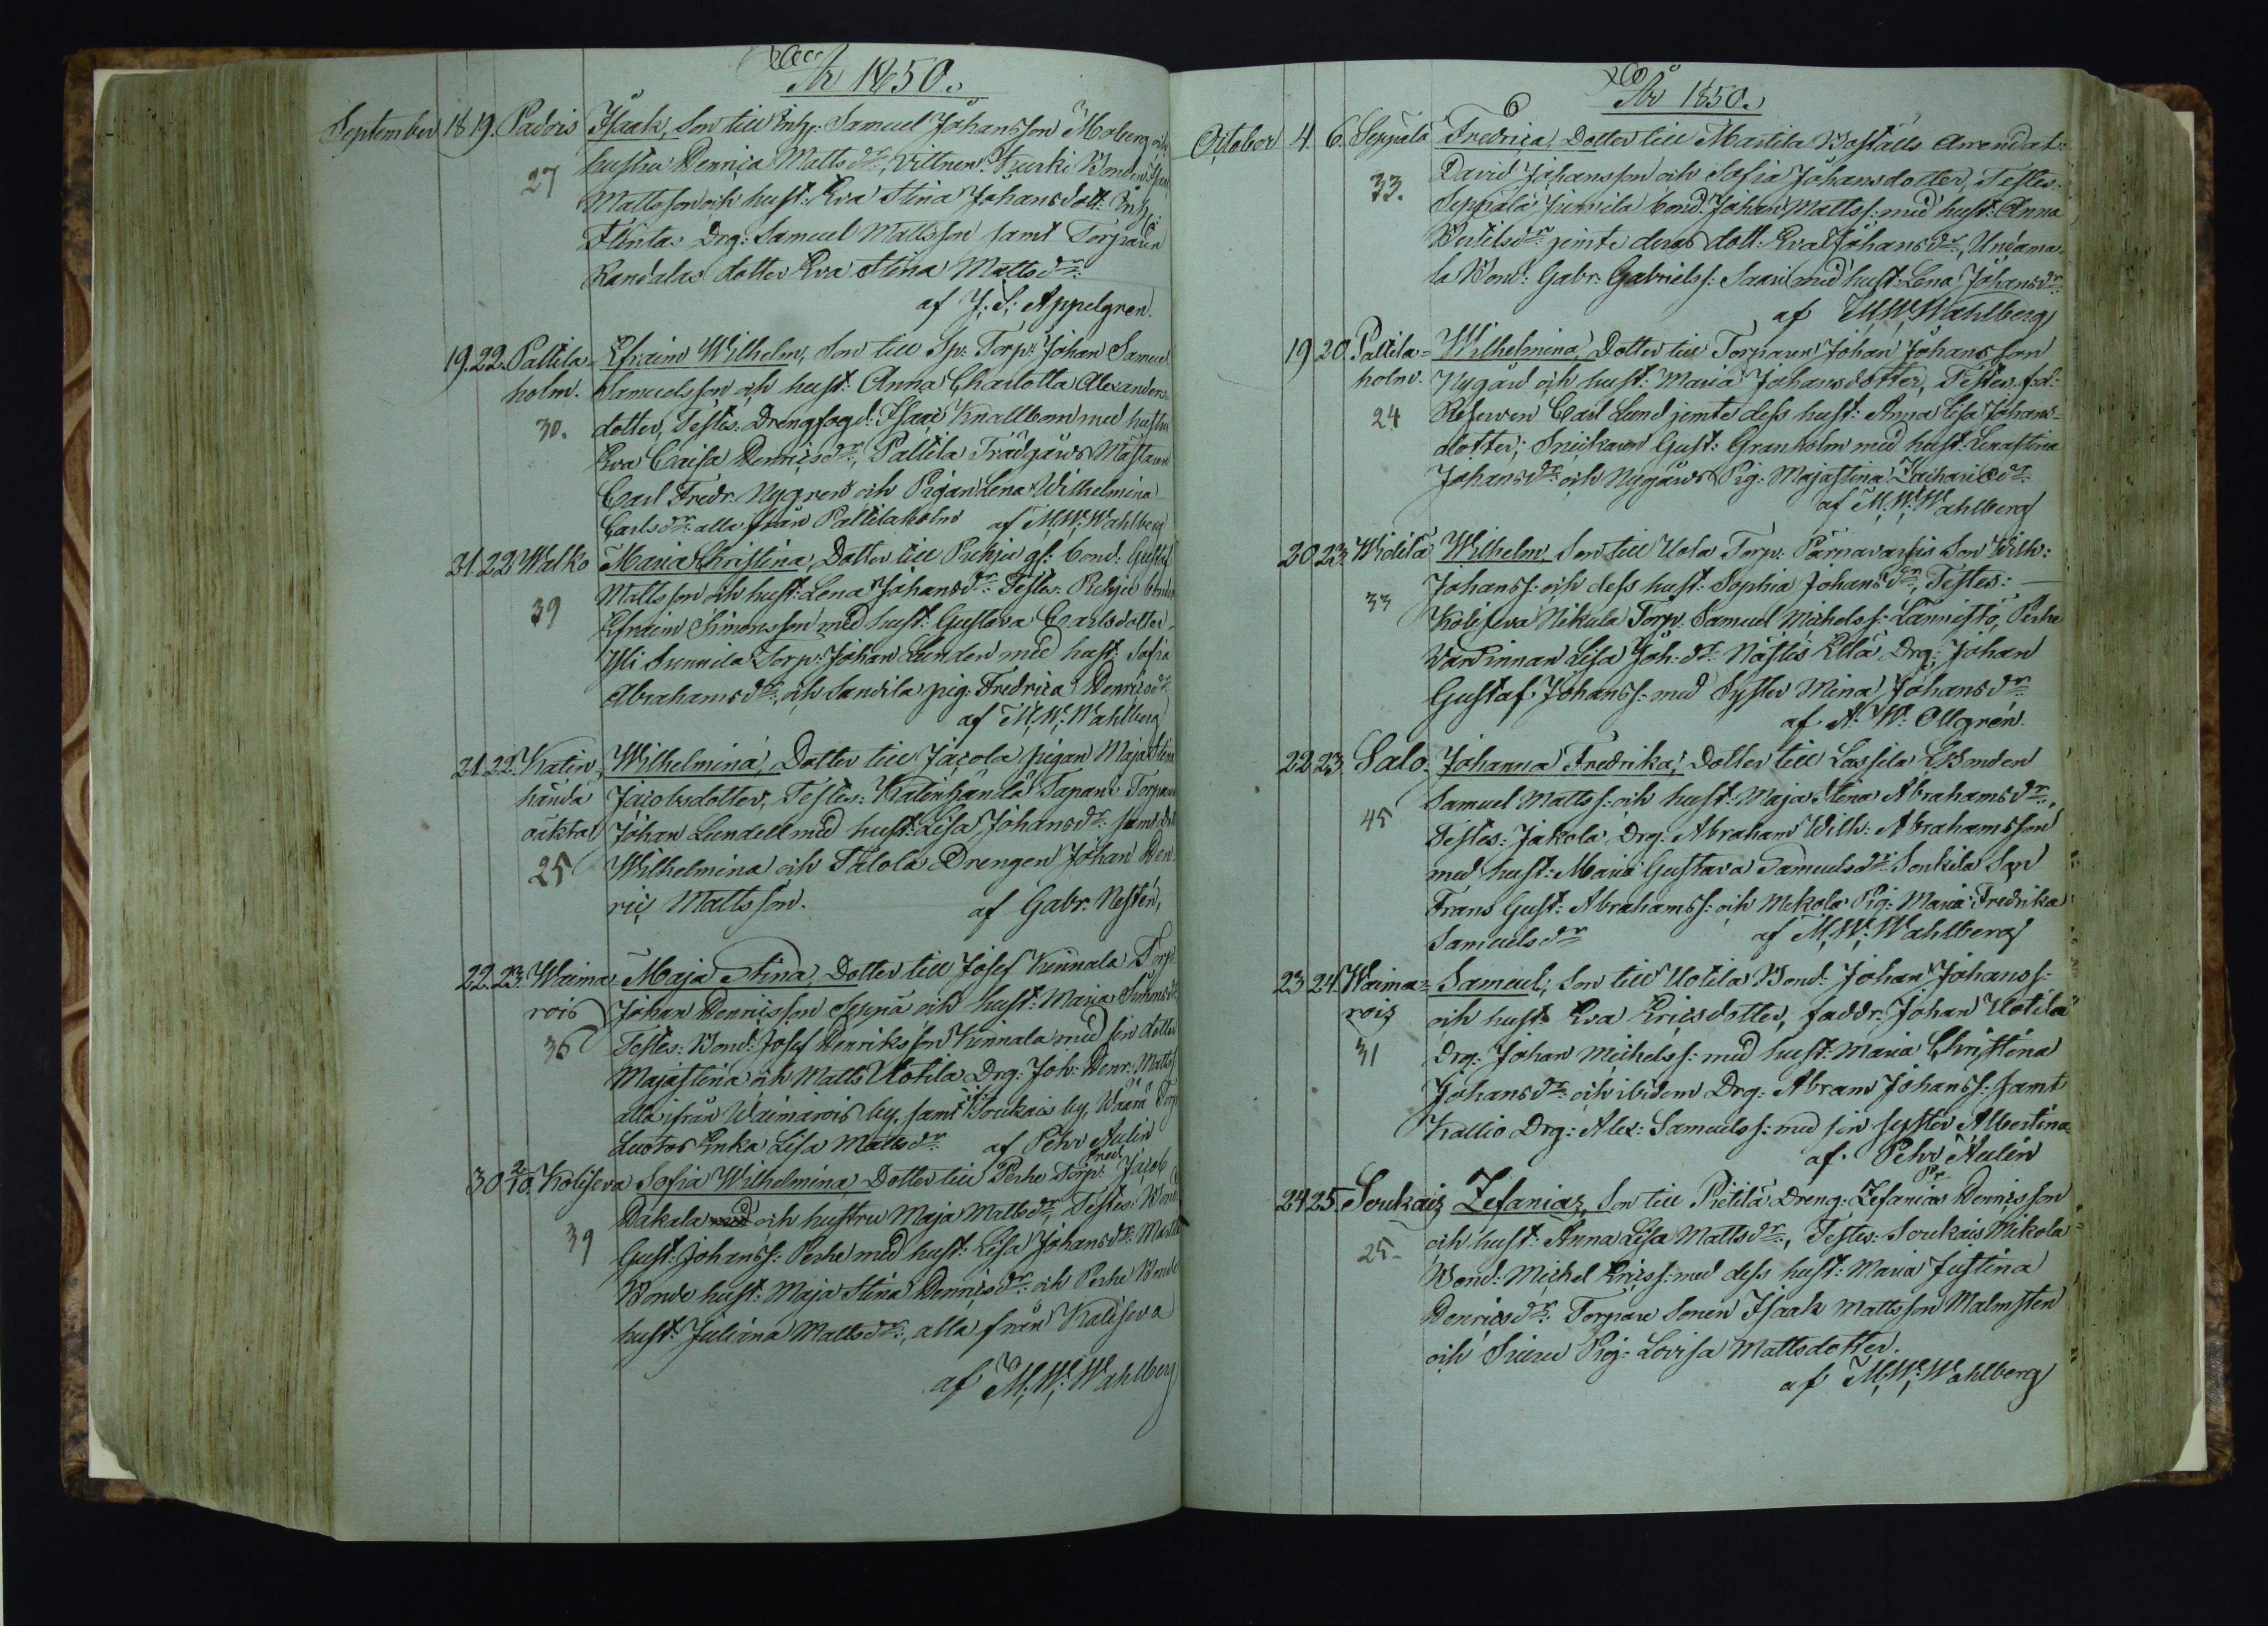 År 1850.
September 18 19. Padois Isaak, Son till Inh: Samuel Johansson Moberg och
hustru Henrica Matts dr:, vittnen: Kurki Bonden
27 Mattsson och hust: Eva Stina Johansdott: Inh:
Drg: Samuel Mattsson samt Torparen
Randalas dotter Eva Stina Matts dr:
af J. S. Appelgren.
19. 22. Paltila Efraim Wilhelm, Son till Sp: Torp: Johan Samuel
holm. Samuelsson och hust: Anna Charlotta Alexanders
30. dotter, Testes: Drengfogd: Isaac Knallbom med hustru
Eva Caisa Henrics dr:, Paltila Trädgårds Mästaren
Carl Fredr. Nygren och Pigan Lena Wilhelmina
Carls dr: alla från Paltilaholm af M. W. Wahlberg
21. 22. Walko Maria Christina, Dotter till gl: bond: Gustaf
Mattsson och hust: Lena Johansdr: Testes:
39 Efraim Simonsson med hust: Gustava Carlsdotter
Yli Torp: Johan Lunden med hust: Sofia
Abrahamsdr:, och Sandila pig: Fredrica Henricsdr:
af M. W. Wahlberg
21. 22. Katin- Wilhelmina, Dotter till Jacola pigan Maja Stina
händä Jacobsdotter, Testes: Katinhändä Tapani Torparen
oäkta Johan Lundell med hust: Lisa Johansdr: samt
25 Wilhelmina och Talola Drengen Johan Hen-
ric Mattsson. af Gabr. Nestén,
22. 23. Waima- Maja Stina, Dotter till Josef Kinnala Torp:
rois Johan Henricsson Seppä och hust: Maria Simonsdr:
36 Testes: Bond: Josef Henriksson Kinnala med sin dotter
Majastina och Matts Uotila Drg: Joh: Henr: Mattss:
alla ifrån Waimarois by, samt Soukais by, Waara Torp:
Luotos Enka Lisa Mattsdr af Pehr Aulin
30 2/10. Kolisева Sofia Wilhelmina, Dotter till Perhe Torp: Fred Jacob
Dakala med och hustru Maja Mattsdr, Testes: Bond:
39 Gust: Johanss: Perhe med hust: Lisa Johansdr:
Bonde hust: Maja Stina Henricsdr: och Perhe Bonde
hust: Juliana Mattsdr:, alla från Kaliseva
af M. W. Wahlberg
År 1850.
October 4. 6. Seppälä Fredrica, Dotter till Martila Boställs Arrendat:
33. David Johansson och Sofia Johansdotter, Testes:
Seppälä Junnila bond: Johan Mattss: med hust: Anna
Bertilsdr: jemte deras dott: Eva Johansdr:, Undama-
la Bond: Gabr: Gabrielss: Saari med hust: Lena Johansdr:
af M. W. Wahlberg
19 20. Paltila- Wilhelmina, Dotter till Torparen Johan Johansson
holm. Nygård och hust: Maria Johansdotter, Testes: f:d:
24 Reserven Carl Lund jemte dess hust: Anna Lisa Johans-
dotter; Snickaren Gust: Granholm med hust: Lenastina
Johansdr och Nygårds Pig: Majastina Zachariedr:
af M. W. Wahlberg
20 23. Widilä Wilhelm, Son till Uola Torp: Pärnavarsis Son Wilh:
33 Johanss: och dess hust: Sophia Johansdr:, Testes: —
Koliseva Nikula Torp: Samuel Michelss: Lännistö, Perhe
Värdinnan Lisa Joh: dr: Nästis Ellä, Drg: Johan
Gustaf Johanss: med Syster Mina Johansdr:
af A. W. Ollgrén.
22 23. Salo. Johanna Fredrika, Dotter till Lassila Bonden
45 Samuel Mattss: och hust: Maja Stina Abrahamsdr:,
Testes: Jakola Drg: Abraham Wilh: Abrahamsson
med hust: Maria Gustava Samuelsdr: Sonkila Son
Frans Gust: Abrahamss: och Mikola Pig: Maria Fredrika
Samuelsdr af M. W. Wahlberg
23 24. Waima- Samuel, Son till Uotila Bond: Johan Johanss:
rois och hust: Eva Ericsdotter, faddr: Johan Uotila
31 Drg: Johan Michelss: med hust: Maria Christina
Johansdr: och ibidem Drg: Abram Johanss: samt
Kallio Drg: Alex: Samuelss: med sin syster Albertina
af Pehr Aulin
24 25. Soukais Zefanias, Son till Pietilä Dreng: Zefanias Henricsson
25. och hust: Anna Lisa Mattsdr:, Testes: Soukais Mikola
Bond: Michel Ericss: med dess hust: Maria Justina
Henricsdr: Torpare Sonen Isaak Mattsson Malmsten
och Pig: Lovisa Mattsdotter.
af M. W. Wahlberg